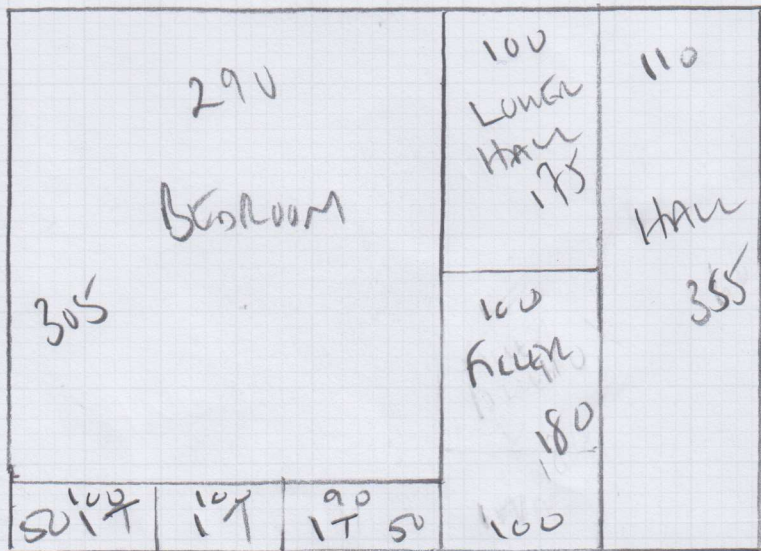 290
BEDROOM
305
100
LOWER
HALL
175
110
HALL
355
100
FILLER
180
100
100
50 1T
100
1T
90
1T 50